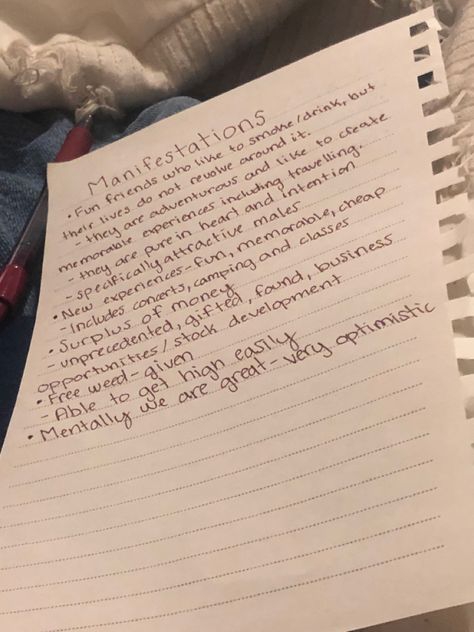 Manifestations
• Fun friends who like to smoke/drink, but
their lives do not revolve around it.
- they are adventurous and like to create
memorable experiences including travelling.
- they are pure in heart and intention
- specifically attractive males
• New experiences - fun, memorable, cheap
- Includes concerts, camping and classes
• Surplus of money
- unprecedented, gifted, found, business
opportunities/stock development
• Free weed - given
- Able to get high easily
• Mentally we are great - very optimistic